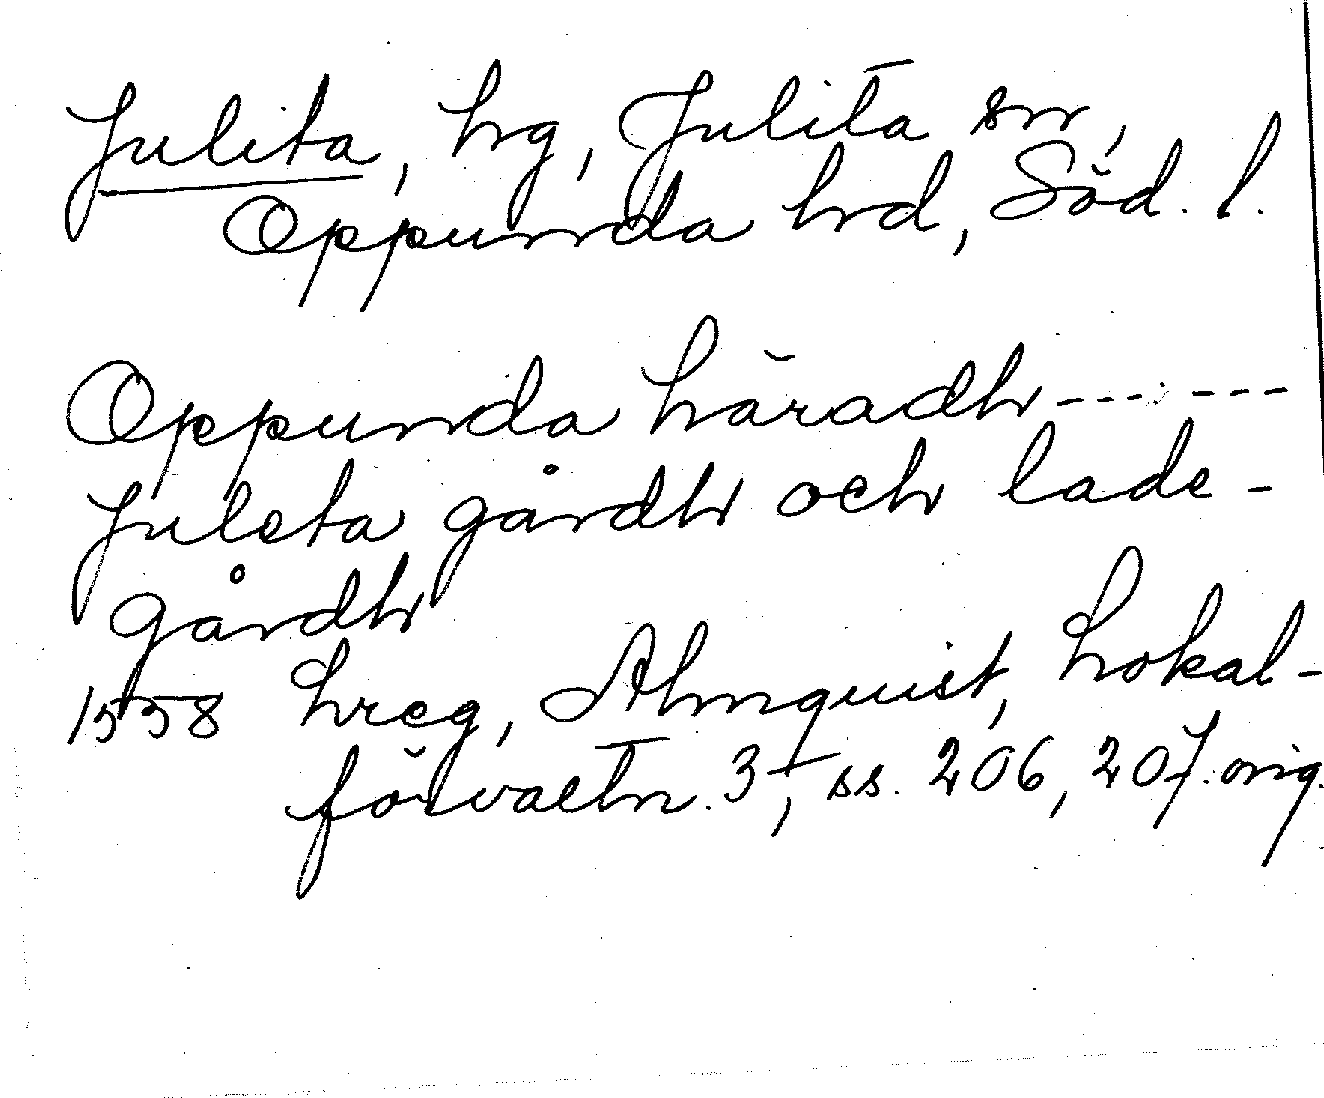 Julita, hg, Julita sn,
Oppunda hd, Söd. l.
Oppunda häradh --- ---
Juleta gårdh och lade-
gårdh
1558 hreg, Almquist, Lokal-
förvaltn. 3, ss. 206, 207. orig.